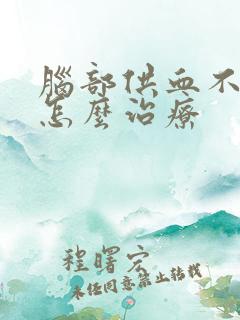 腦部供血不
怎麼治療
程曙宏
未经同意禁止转载